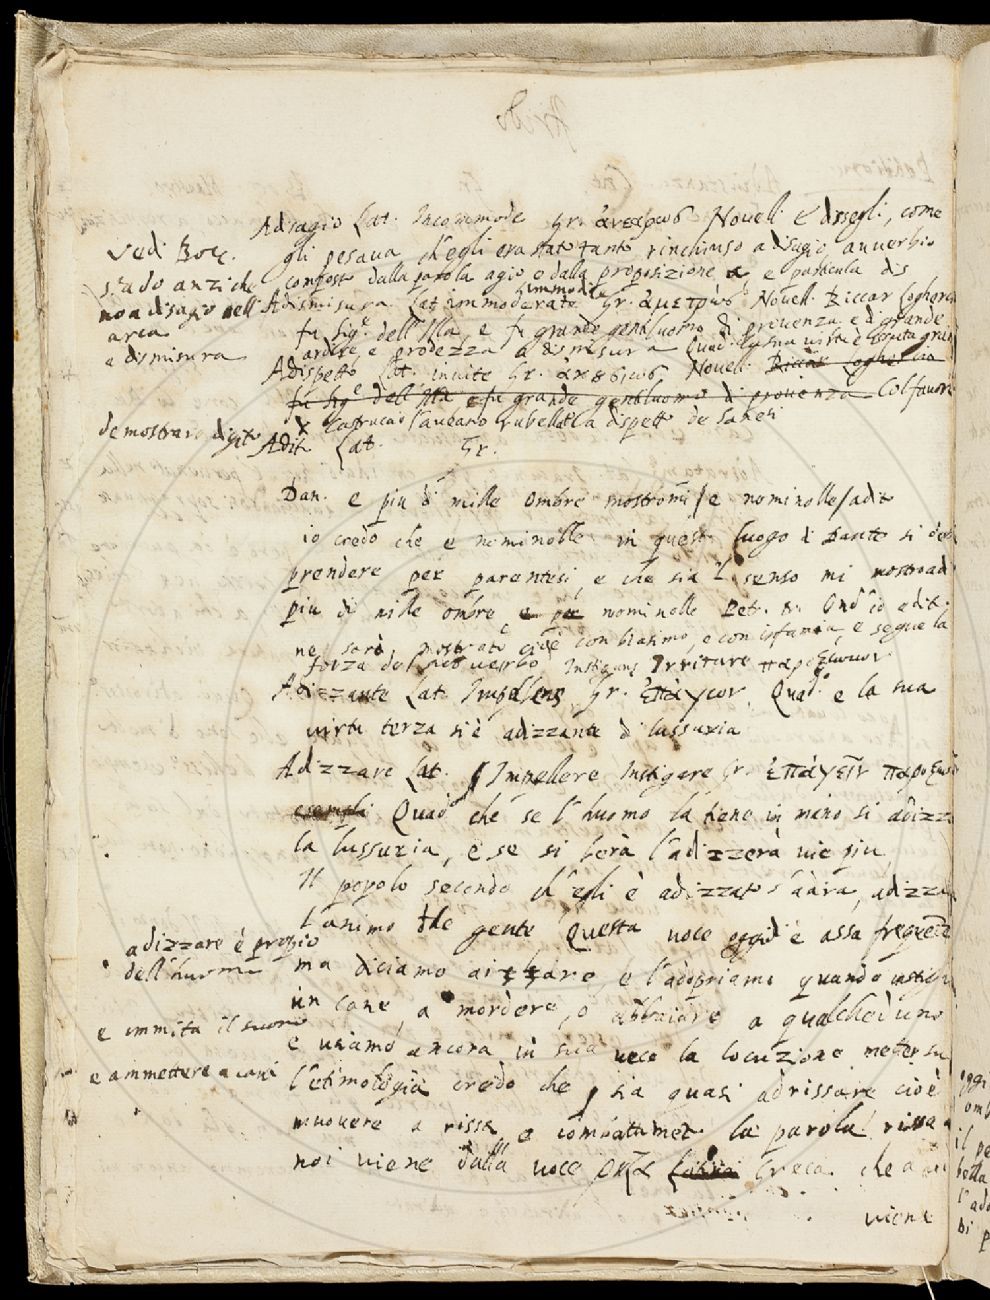 Adisagio Lat. Incommode Gr. Novell. come
gli pesava ch'egli era stato tanto rinchiuso a disagio avverbio
composto dalla parola agio e dalla preposizione a e particula dis
immodice
Adismisura Lat immoderate Gr. ἀμετρως Novell. Riccar Logherc
fu Sig.e dell'Illa, e fu grande gentiluomo di provenza e di grande
ardire, e prodezza a dismisura Quad. la sua virtù è
Adispetto Lat. invite Gr. Novell. Riccar Logherc
fu Sig.e dell'Illa e fu grande gentiluomo di provenza Col favore
di Castruccio a dispetto de
Adito Lat. Gr.
Vedi Bocc.
s'ado anziche
no a disagio nell'
arca
a dismisura
demostrare digito
Dan. e piu di mille ombre mostrommi/e nominolle/adito
io credo che e nominolle in questo luogo di Dante si debb
prendere per parentesi, e che sia il senso mi mostro ad
piu di mille ombre, e per nominolle Pet. Ond'io a dito
ne sarò mostrato cioè con biasimo, e con infamia, e segue la
forza del suo verbo Instigans Irritare
Adizzante Lat. Impellens Gr. ἐπάγων. Quad. e la sua
virtu terza si è adizzante di lussuria
Adizzare Lat. Impellere Instigare Gr. ἐπάγειν
esempli Quad che se l'huomo la tiene in mano si adizza
la lussuria, e se si berà l'adizzerà vie piu
Il popolo secondo ch'egli è adizzato s'aira, adizza
l'animo delle gente Questa voce oggidi è assa frequente
ma diciamo aizzare, e l'adopriamo quando instigh
un cane, a mordere, o abbaiare a qualcheduno
e usiamo ancora in sua vece la locuzione metter su
l'etimologia credo che sia quasi adrissare cioè
muovere a rissa e combattimento la parola rissa a
noi viene dalla voce Latina Greca che a noi
viene
adizzare è proprio
dell'huomo
e immita il suono
e ammettere a cani